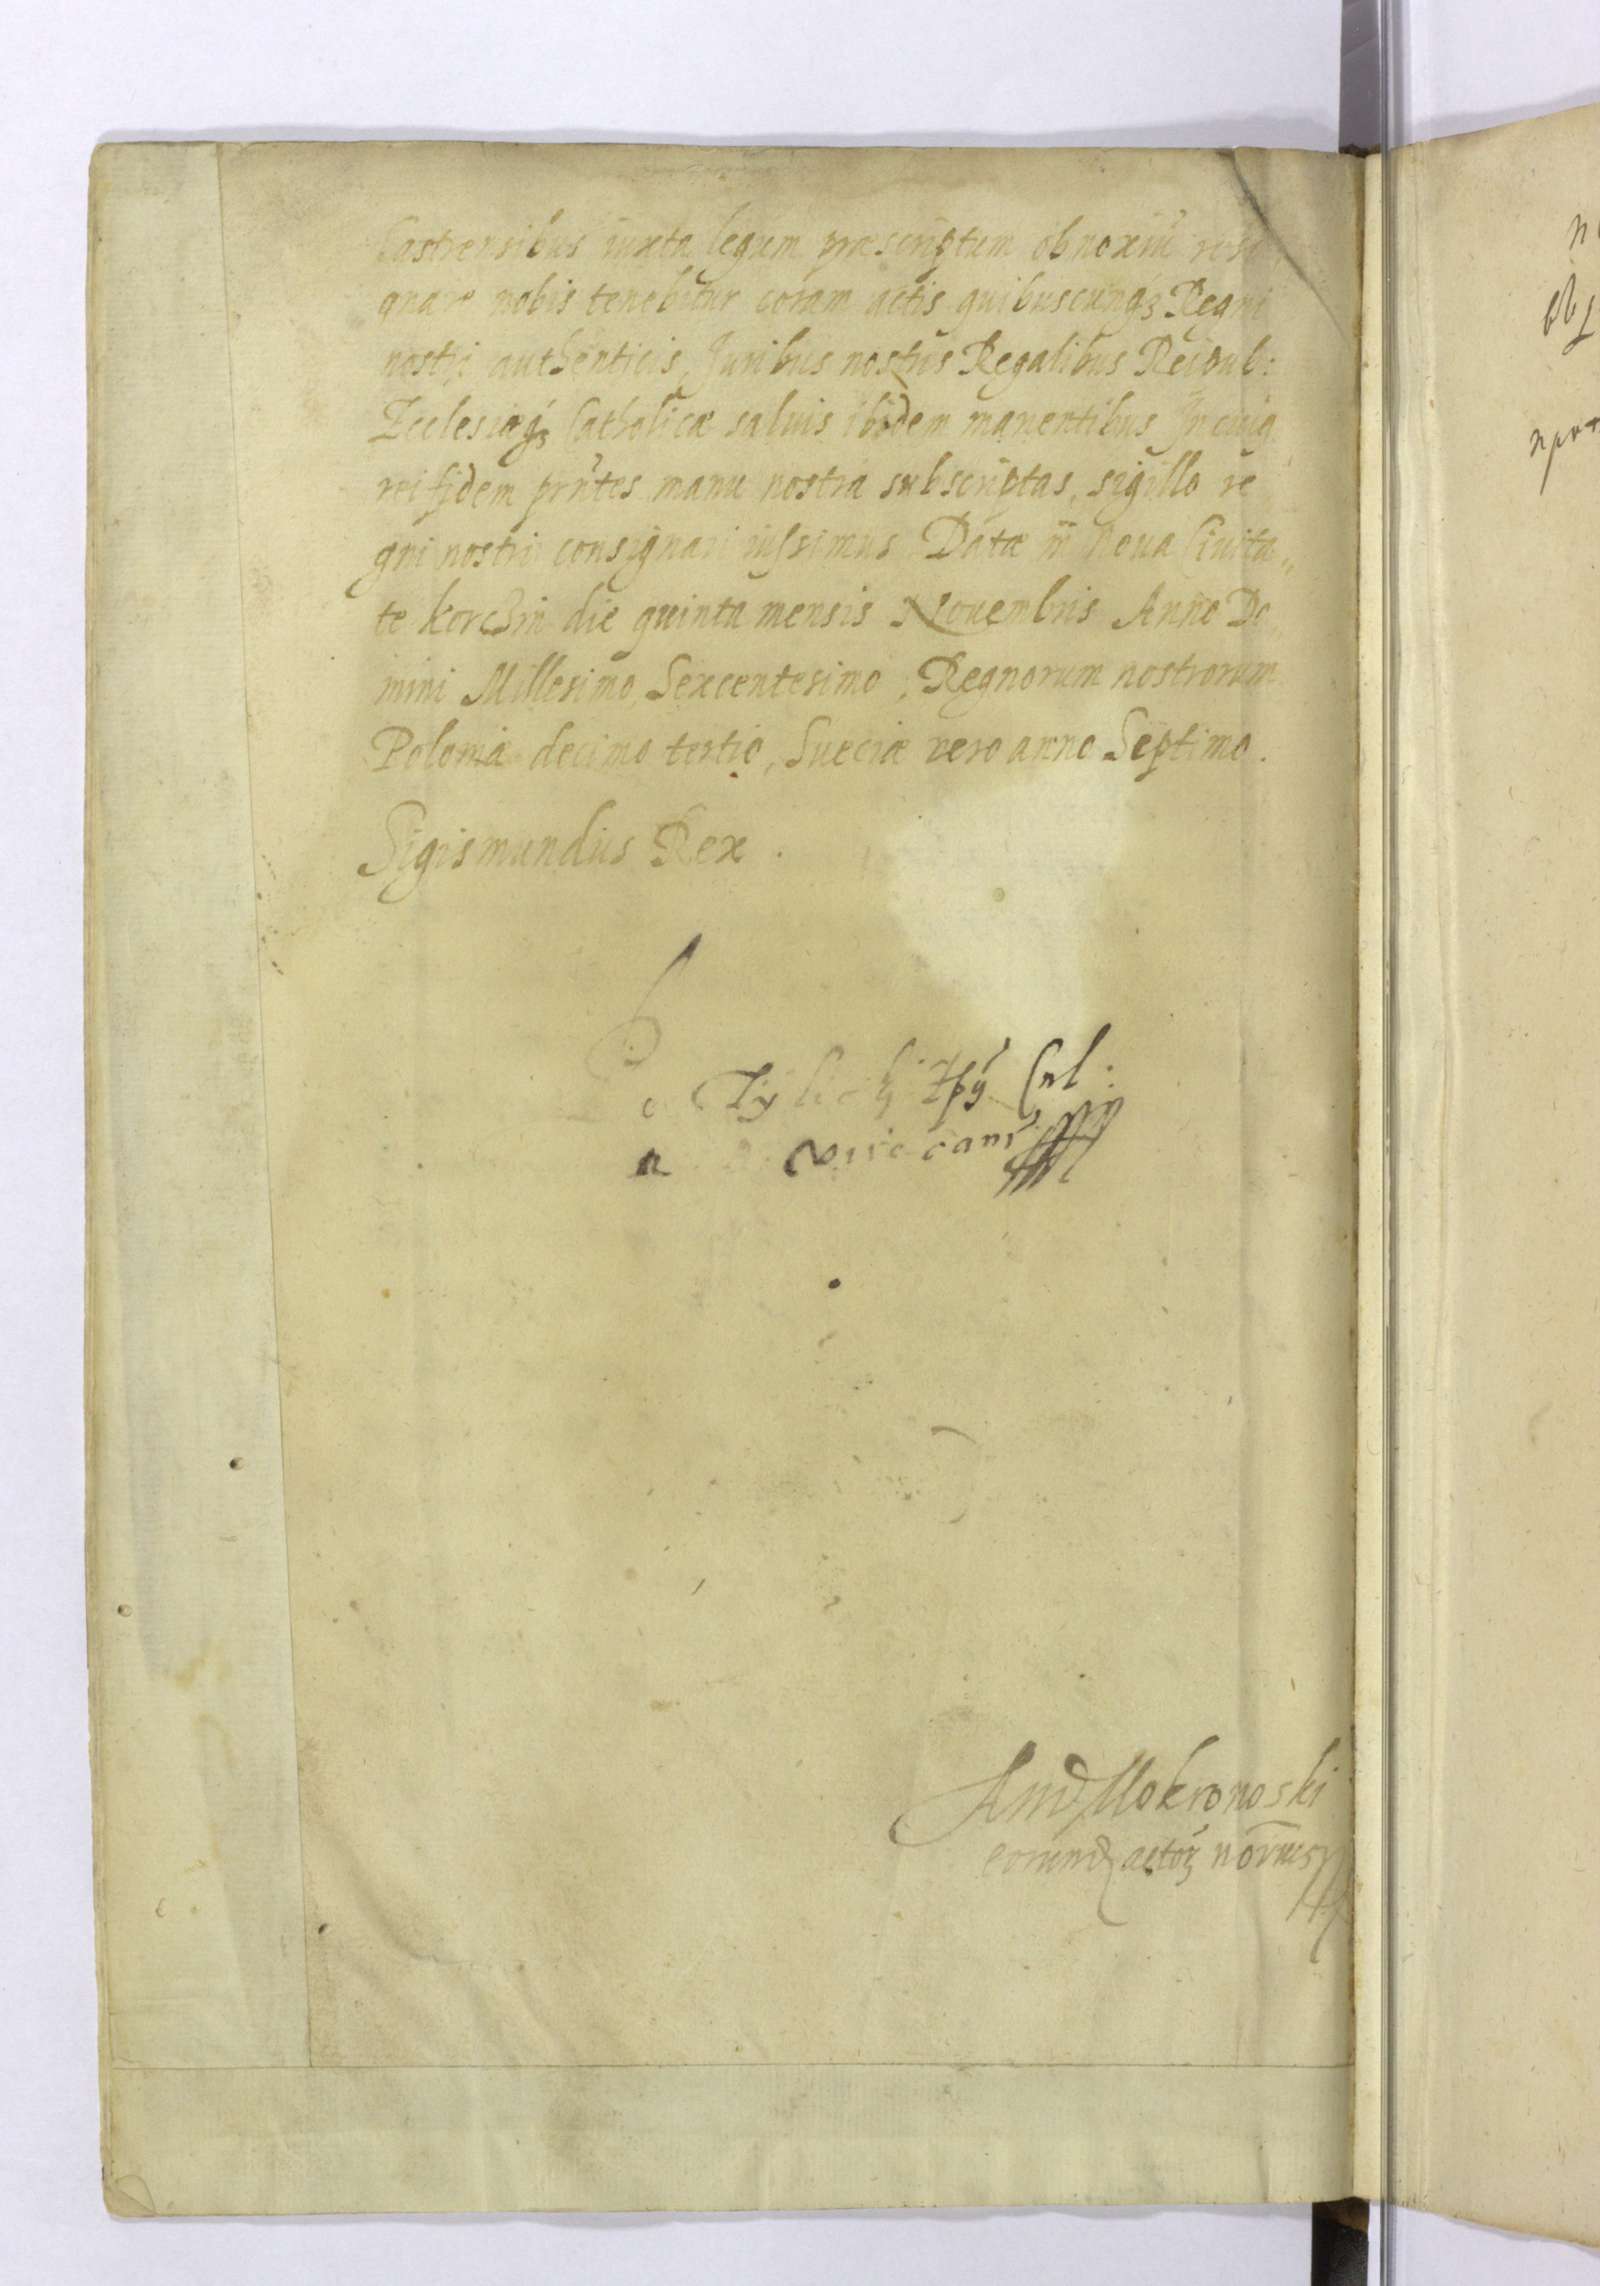 Castrensibus iuxta legum præscriptum obnoxiu᷑ resi
gnare nobis tenebitur coram actis quibuscunqꝫ Regni
nostri authenticis, Juribus nostris Regalibus Reipub:
Ecclesiæqꝫ Catholicæ saluis ibidem manentibus In cuiꝯ
rei fidem prn̄tes manu nostra subscriptas, sigillo re
gni nostri consignari iussimus Datæ in Noua Ciuita„
te korczin die quinta mensis Nouembris Anno Do„
mini Millesimo Sexcentesimo, Regnorum nostrorum
Poloniæ decimo tertio, Sueciæ vero anno Septimo.
Sigismundus Rex.
Tylicz
And Mokronoski
eorund actoꝝ